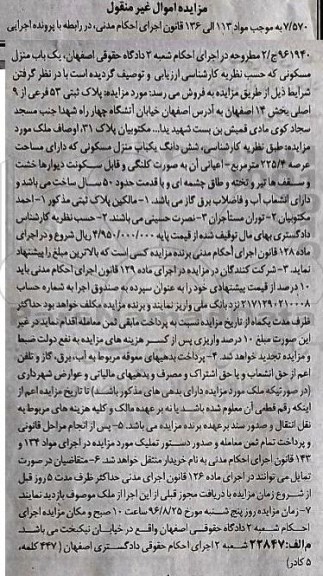 مزایده اموال غیر منقول
۷/۵۷۰ به موجب مواد ۱۱۳ الی ۱۳۶ قانون اجرای احکام مدنی، در رابطه با پرونده اجرایی
۹۶۱۹۴۰ج/۲ مطروحه در اجرای احکام شعبه ۲ دادگاه حقوقی اصفهان، یک باب منزل
مسکونی که حسب نظریه کارشناسی ارزیابی و توصیف گردیده است با در نظر گرفتن
شرایط ذیل از طریق مزایده به فروش می رسد: مورد مزایده: پلاک ثبتی ۵۳ فرعی از ۹
اصلی بخش ۱۴ اصفهان به آدرس اصفهان خیابان آتشگاه چهار راه شهدا جنب مسجد
سجاد کوی مادی قمیش بن بست شهید یدا... مکتوبیان پلاک ۳۱، اوصاف ملک مورد
مزایده: طبق نظریه کارشناسی، شش دانگ یکباب منزل مسکونی که دارای مساحت
عرصه ۲۲۵/۴ مترمربع- اعیانی آن به صورت کلنگی و قابل سکونت دیوارها خشت
و سقف ها تیر و تخته و طاق چشمه ای و با قدمت حدود ۵۰ سال ساخت می باشد و
دارای انشعاب آب و فاضلاب برق گاز می باشد. ۱- مالکین پلاک ثبتی مذکور ۱- احمد
مکتوبیان ۲- توران مستأجران ۳- نصرت حسینی می باشند. ۲- حسب نظریه کارشناس
دادگستری بهای مال توقیف شده از قیمت پایه ۴/۹۵۰/۰۰۰/۰۰۰ ریال شروع و در اجرای
ماده ۱۲۸ قانون اجرای احکام مدنی برنده مزایده کسی است که بالاترین مبلغ را پیشنهاد
نماید. ۳- شرکت کنندگان در مزایده در اجرای ماده ۱۲۹ قانون اجرای احکام مدنی باید
۱۰ درصد از قیمت پیشنهادی خود را به عنوان سپرده به صندوق اجرا به شماره حساب
۲۱۷۱۲۹۰۲۱۰۰۰۸ نزد بانک ملی واریز نمایند و برنده مزایده مکلف خواهد بود حداکثر
ظرف مدت یکماه از تاریخ مزایده نسبت به پرداخت مابقی ثمن معامله اقدام نماید در غیر
این صورت مبلغ ۱۰ درصد واریزی پس از کسر هزینه های مزایده به نفع دولت ضبط
و مزایده تجدید خواهد شد. ۴- پرداخت بدهیهای معوقه مربوط به آب، برق، گاز و تلفن
اعم از حق انشعاب و یا حق اشتراک و مصرف و بدهیهای مالیاتی و عوارض شهرداری
(در صورتیکه ملک مورد مزایده دارای بدهی های مذکور باشد) تا تاریخ مزایده اعم از
اینکه رقم قطعی آن معلوم شده باشد یا نه بر عهده مالک و کلیه هزینه های مربوط به
نقل انتقال و صدور سند برعهده برنده مزایده می باشد. ۵- پس از انجام مراحل قانونی
و پرداخت تمام ثمن معامله و صدور دستور تملیک مورد مزایده در اجرای مواد ۱۳۴ و
۱۴۳ قانون اجرای احکام مدنی به نام خریدار منتقل خواهد شد. ۶- متقاضیان در صورت
تمایل می توانند در اجرای ماده ۱۲۶ قانون اجرای مدنی حداکثر ظرف مدت ۵ روز قبل
از شروع زمان مزایده با دریافت مجوز قبلی از این اجرا از ملک موصوف بازدید نمایند.
۷- زمان مزایده روز پنج شنبه مورخ ۹۶/۸/۲۵ ساعت ۱۰ صبح و مکان مزایده اجرای
احکام شعبه ۲ دادگاه حقوقی اصفهان واقع در خیابان نیکبخت می باشد.
م الف: ۲۲۸۴۷ شعبه ۲ اجرای احکام حقوقی دادگستری اصفهان (۴۴۷ کلمه،
۵ کادر)